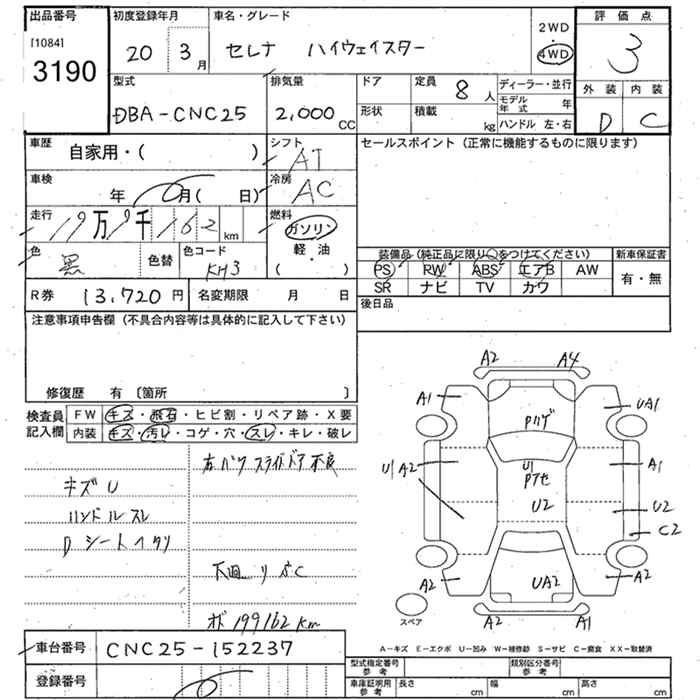 出品番号
[1084]
3190
初度登録年月
20 3月
車名・グレード
セレナ ハイウェイスター
2WD
・
4WD
評価点
3
外装 内装
D C
型式
DBA-CNC25
排気量
2,000 CC
ドア
形状
定員 8 人
積載 kg
ディーラー・並行
モデル年式 年
ハンドル 左・右
車歴
自家用・( )
シフト
AT
セールスポイント(正常に機能するものに限ります)
車検
年 月( 日)
冷房
AC
走行
19万 9千 162 km
燃料
ガソリン
軽・油
( )
色
黒
色替
色コード
KH3
装備品(純正品に限り○をつけてください)
PS RW ABS エアB AW
SR ナビ TV カワ
新車保証書
有・無
R券 13,720 円
名変期限 月 日
後日品
注意事項申告欄(不具合内容等は具体的に記入して下さい)
修復歴 有〔箇所 〕
検査員記入欄
FW キズ・飛石・ヒビ割・リペア跡・X要
内装 キズ・汚レ・コゲ・穴・スレ・キレ・破レ
右パワスライドドア不良
キズU
ハンドルスレ
Dシートイタリ
下廻りサC
オド 199162km
A2 A4
A1 UA1
Pハゲ
U1 A2
U1
Pアセ
A1
U2 U2
C2
A2 UA2 A2
A2 A1
スペア
車台番号 CNC25-152237
A-キズ E-エクボ U-凹み W-補修跡 S-サビ C-腐食 XX-取替済
登録番号
型式指定番号 参考
類別区分番号 参考
車庫証明用 参考
長さ cm 幅 cm 高さ cm